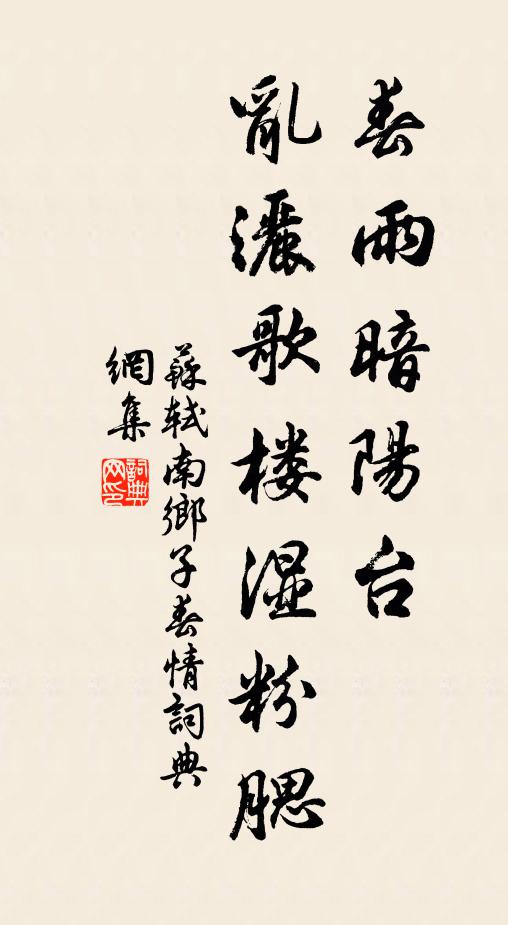 春雨暗陽台
亂灑歌楼湿粉腮
蘇軾南鄉子春情詞典
網集
詞典網印